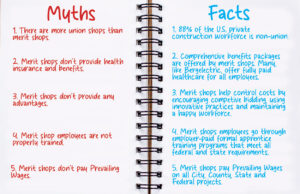 Myths
1. There are more union shops than
merit shops.
2. Merit shops don't provide health
insurance and benefits.
3. Merit shops don't provide any
advantages.
4. Merit shop employees are not
properly trained.
5. Merit shops don't pay Prevailing
Wages.
Facts
1. 88% of the U.S. private
construction workforce is non-union.
2. Comprehensive benefits packages
are offered by merit shops. Many,
like Bergelectric, offer fully paid
healthcare for all employees.
3. Merit shops help control costs by
encouraging competitive bidding, using
innovative practices and maintaining
a happy workforce.
4. Merit shops employees go through
employer-paid formal apprentice
training programs that meet all
federal and state requirements.
5. Merit shops pay Prevailing Wages
on all City, County, State and
Federal projects.